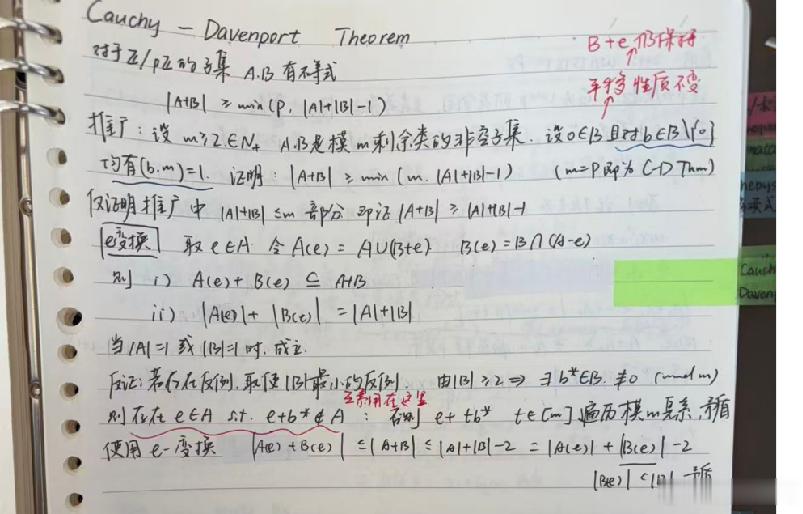 Cauchy - Davenport Theorem
对于Z/pZ的子集 A.B 有不等式
B+e 仍保持
平移性质不变
|A+B| ≥ min(p, |A|+|B|-1)
推广: 设 m≥2∈N₊ A.B是模m剩余类的非空子集. 设0∈B且对b∈B\{0}
均有(b.m)=1. 证明: |A+B| ≥ min(m. |A|+|B|-1) (m=p即为 C-D Thm)
仅证明推广中 |A|+|B| ≤m 部分 即证 |A+B| ≥ |A|+|B|-1
e变换 取e∈A 令 A(e) = A∪(B+e) B(e) = B∩(A-e)
则 i) A(e)+ B(e) ⊆ A+B
ii) |A(e)|+ |B(e)| = |A|+|B|
当|A|=1 或 |B|=1时. 成立.
反证: 若存在反例. 取使|B|最小的反例. 由|B|≥2 ⇒ ∃ b*∈B. ≢0 (mod m)
互素用在这里
则存在 e∈A s.t. e+b*∉A : 否则 e+tb* t∈[m]遍历模m完系, 矛盾
使用 e-变换 |A(e)+B(e)| ≤|A+B| ≤ |A|+|B|-2 = |A(e)| + |B(e)| -2
|B(e)| <|B| 矛盾
Cauch
Daven